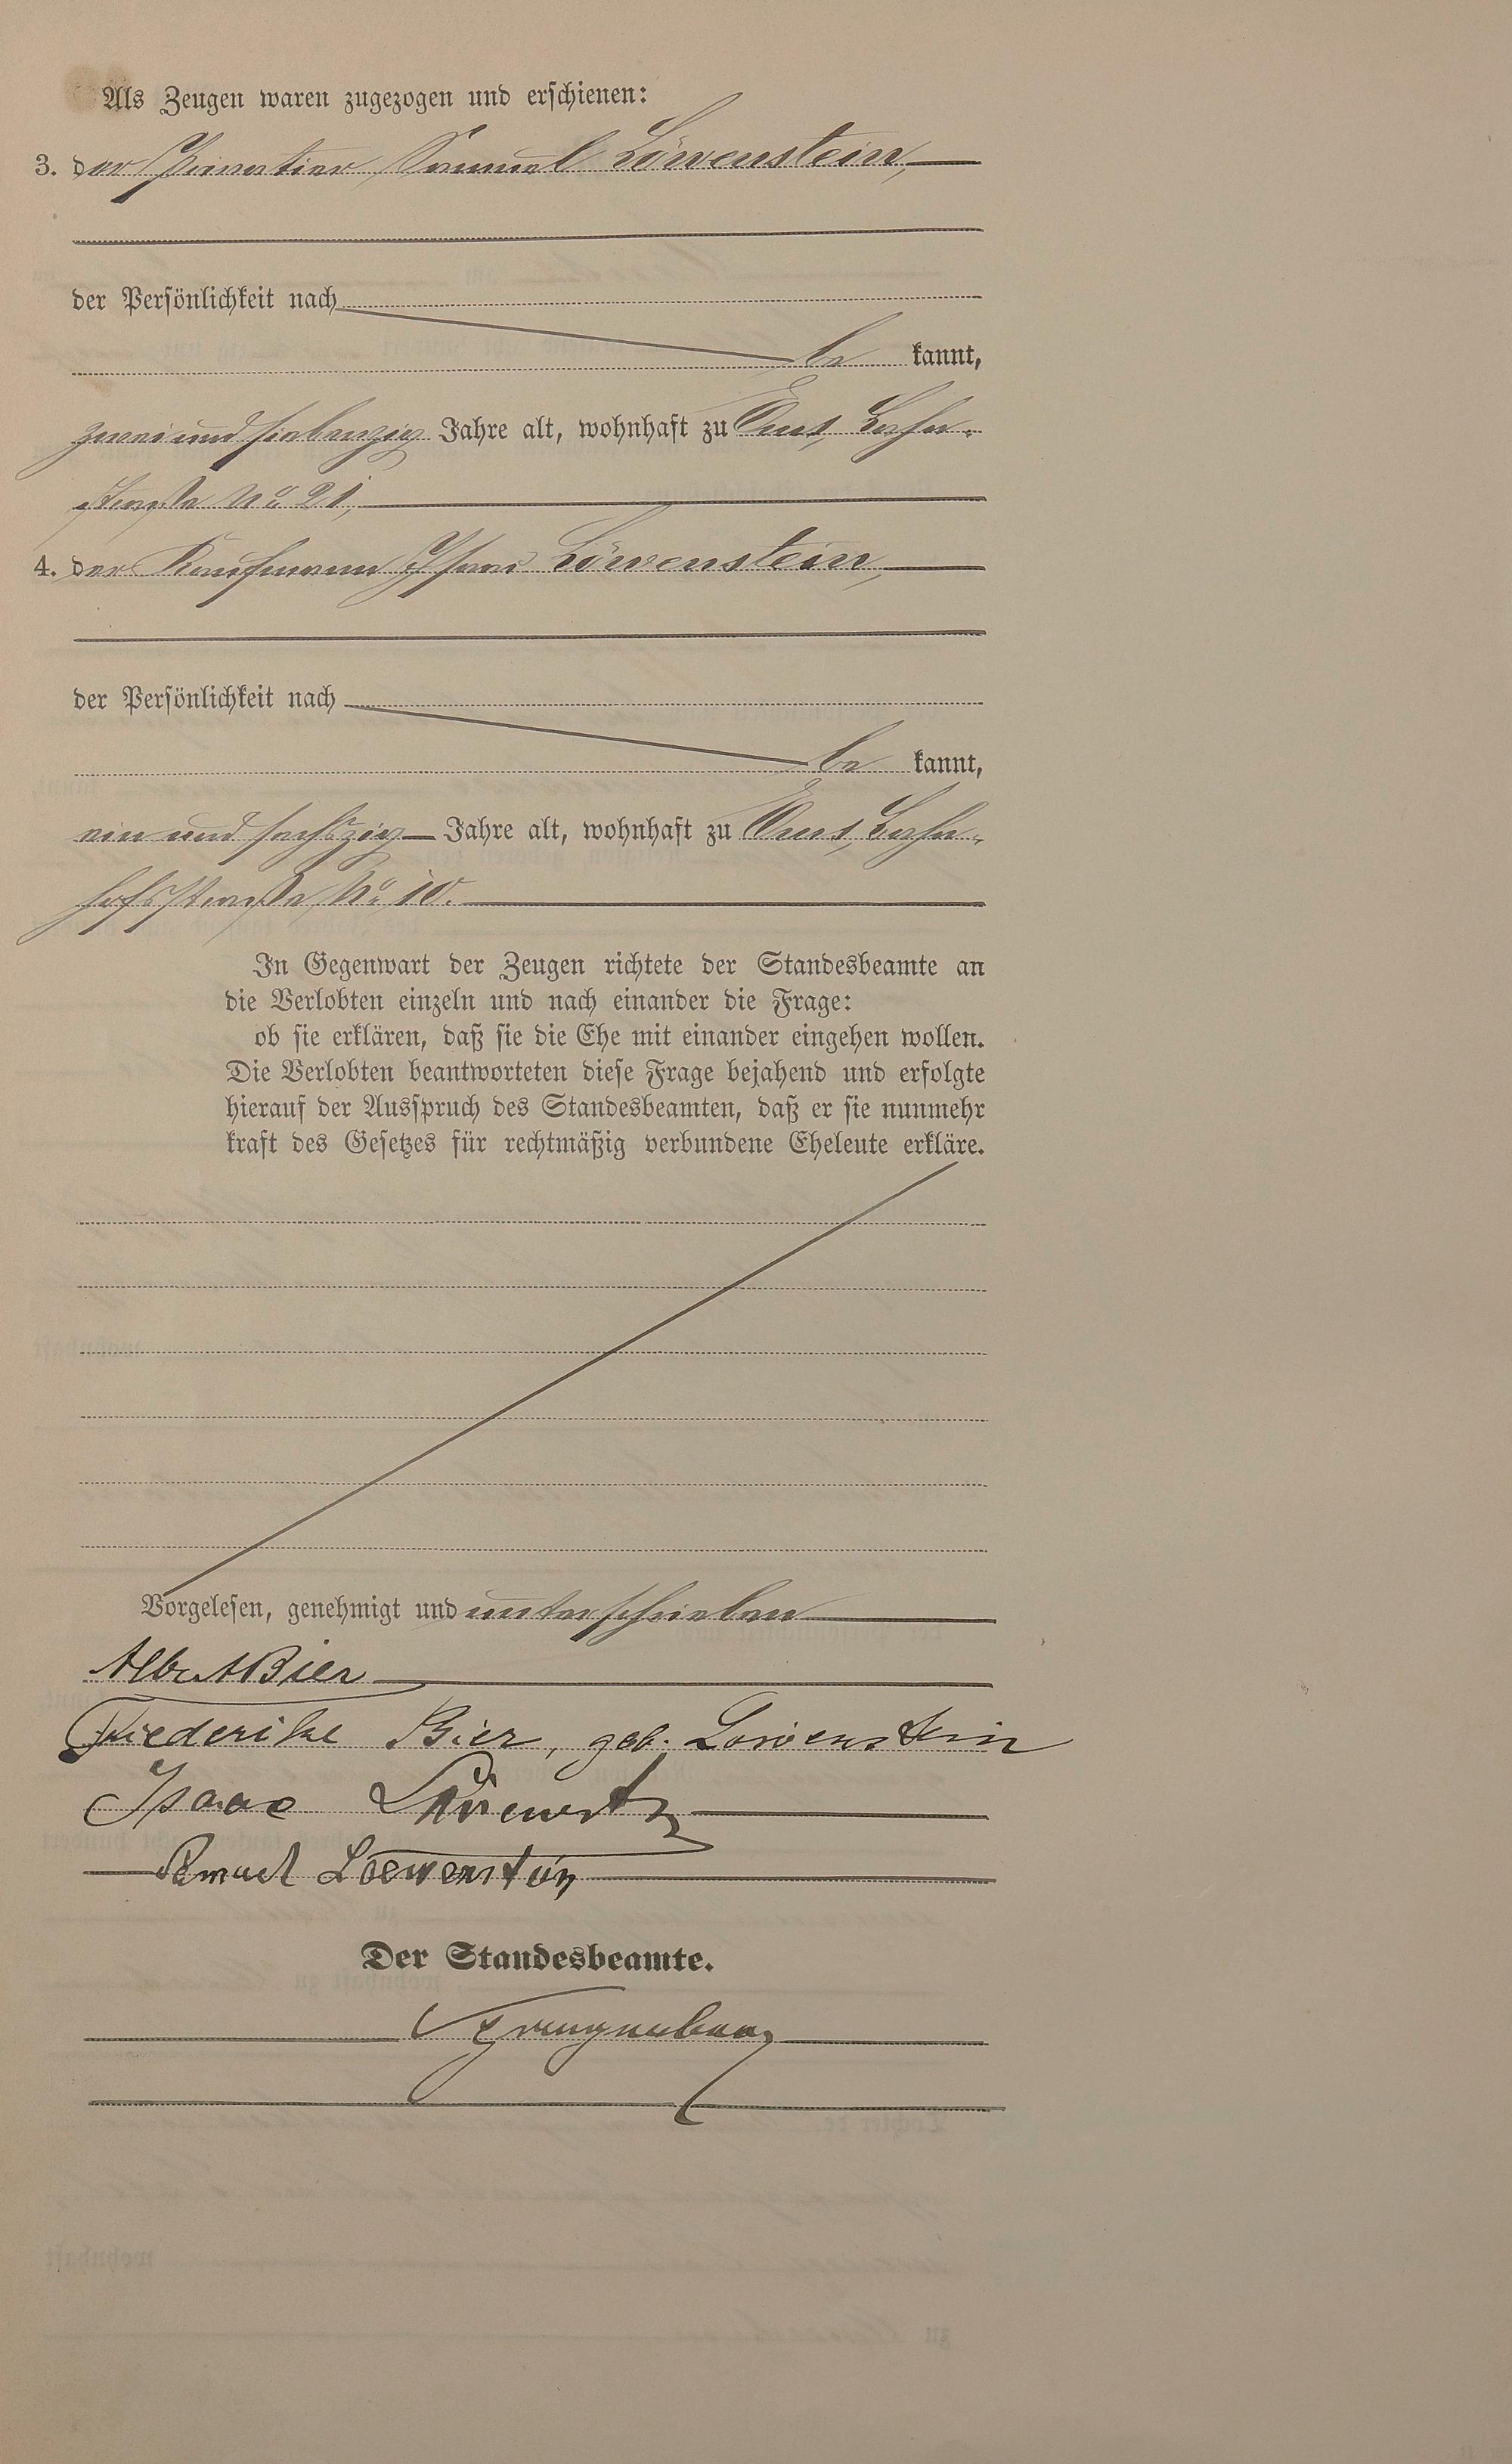 Als Zeugen waren zugezogen und erschienen:
3. der Privatier Samuel Löwenstein,
der Persönlichkeit nach
be kannt,
zwei und siebenzig Jahre alt, wohnhaft zu Ems,
straße No. 21,
4. der Kaufmann Isaac Löwenstein,
der Persönlichkeit nach
be kannt,
ein und sechszig Jahre alt, wohnhaft zu Ems, Bahn-
hofsstraße No. 10.
In Gegenwart der Zeugen richtete der Standesbeamte an
die Verlobten einzeln und nach einander die Frage:
ob sie erklären, daß sie die Ehe mit einander eingehen wollen.
Die Verlobten beantworteten diese Frage bejahend und erfolgte
hierauf der Ausspruch des Standesbeamten, daß er sie nunmehr
kraft des Gesetzes für rechtmäßig verbundene Eheleute erkläre.
Vorgelesen, genehmigt und unterschrieben
Albert Bier
Friederike Bier, geb. Löwenstein
Isaac
Samuel Loewenstein
Der Standesbeamte.